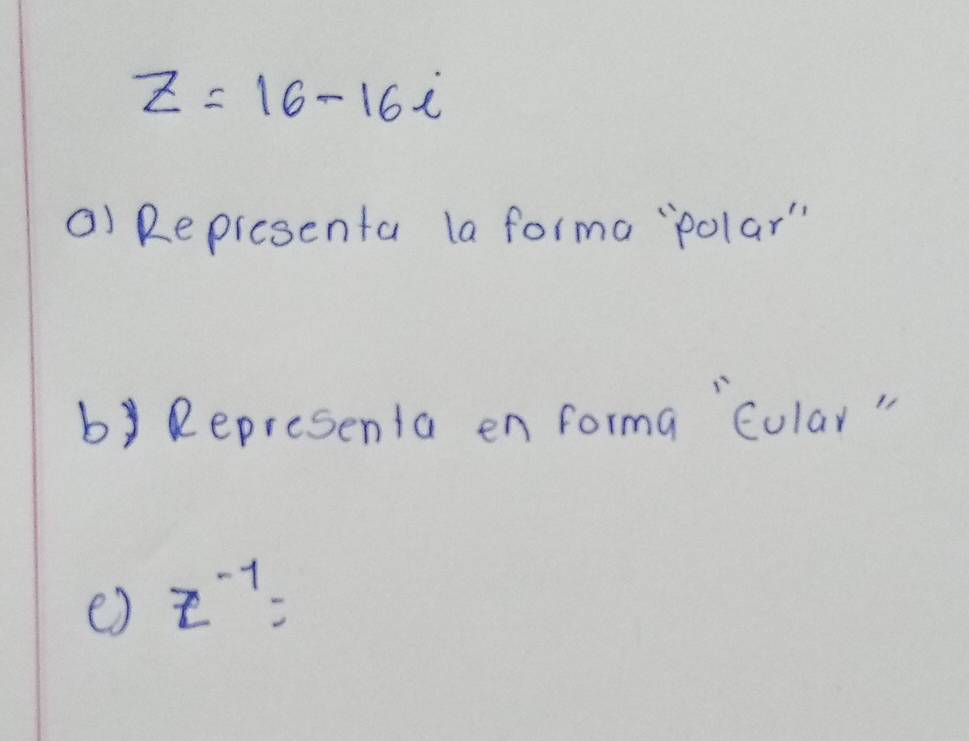 Z = 16-16i
a) Representa la forma "polar"
b) Representa en forma "Eular"
c) z⁻¹=